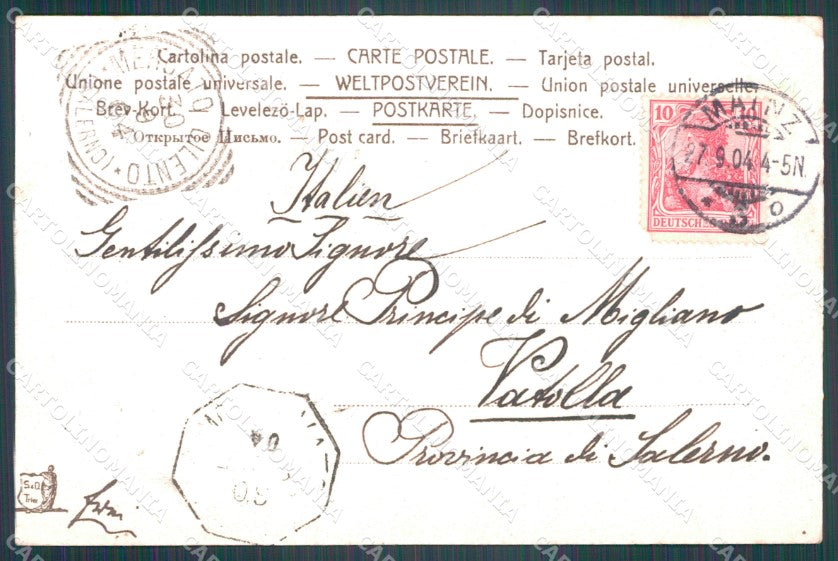 Cartolina postale. — CARTE POSTALE. — Tarjeta postal.
Unione postale universale. — WELTPOSTVEREIN. — Union postale universelle.
Brev-Kort. Levelező-Lap. — POSTKARTE. — Dopisnice.
Открытое Письмо. — Post card. — Briefkaart. — Brefkort.
MERCATO CILENTO
10
DEUTSCHES
MAINZ
27.9.04.4-5N.
Italien
Gentilissimo Signore
Signore Principe di Migliano
Vatolla
Provincia di Salerno.
04
S.&D.
Trier
frei
CARTOLINOMANIA